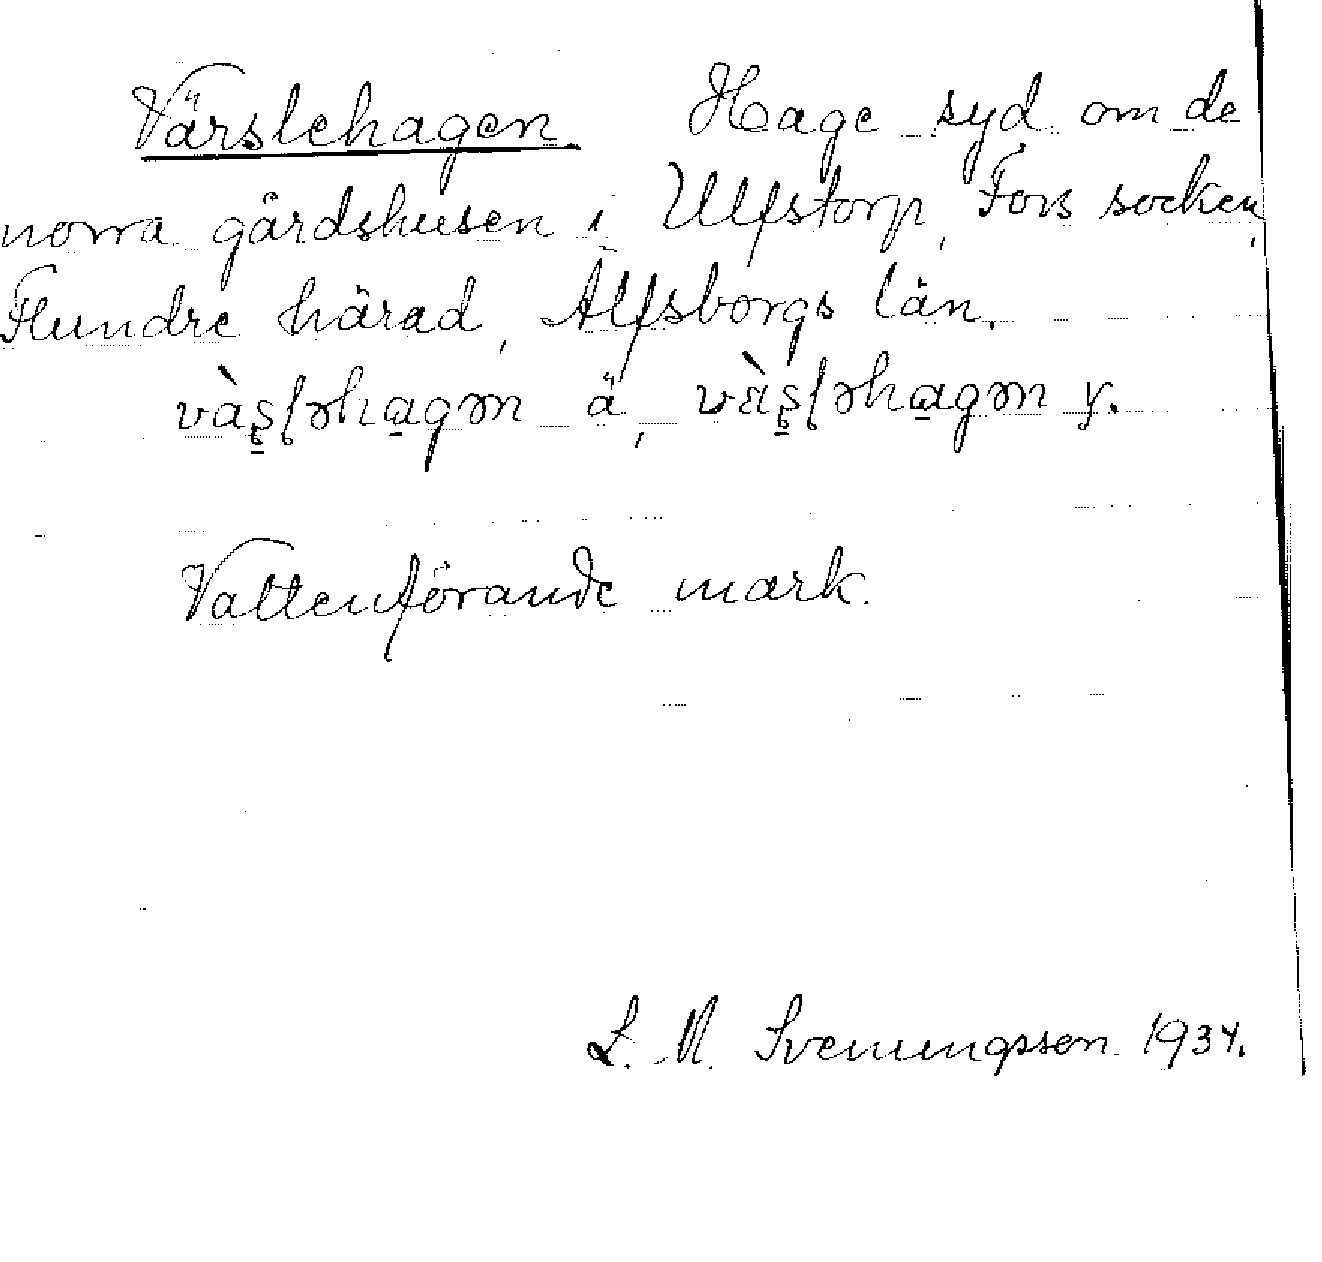 Värslehagen. Hage syd om de
norra gårdshusen i Ulfstorp, Fors socken,
Flundre härad, Älfsborgs län.
vàs̠ļəha̠gən ä, vàs̠ļəha̠gən y.
Vattenförande mark.
L. M. Svenungsson 1934.